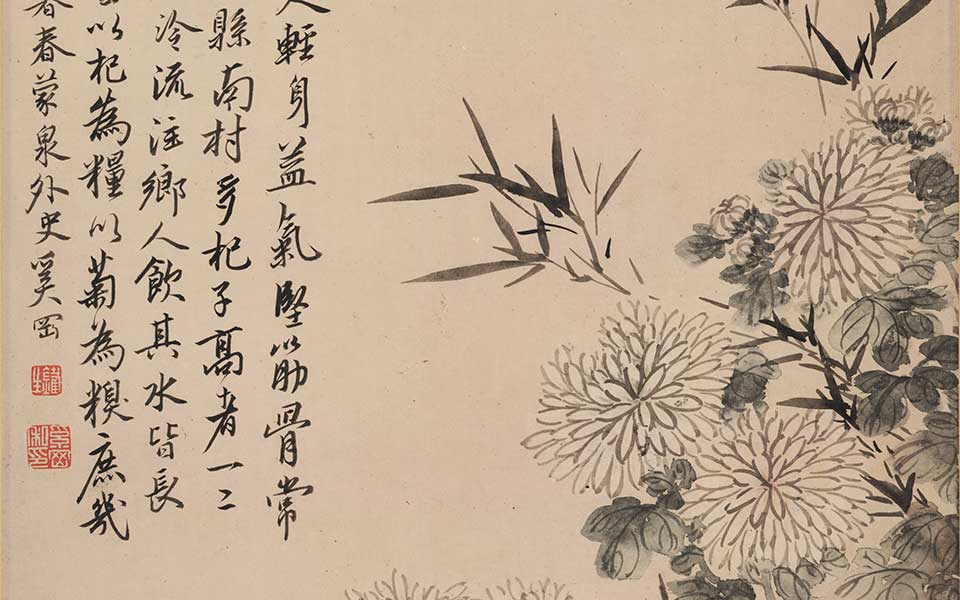 人輕身益氣堅筋骨常
縣南村多杞子高者一二
泠流注鄉人飲其水皆長
以杞為糧以菊為糗庶幾
春蒙泉外史奚岡
鐵生
奚岡私印